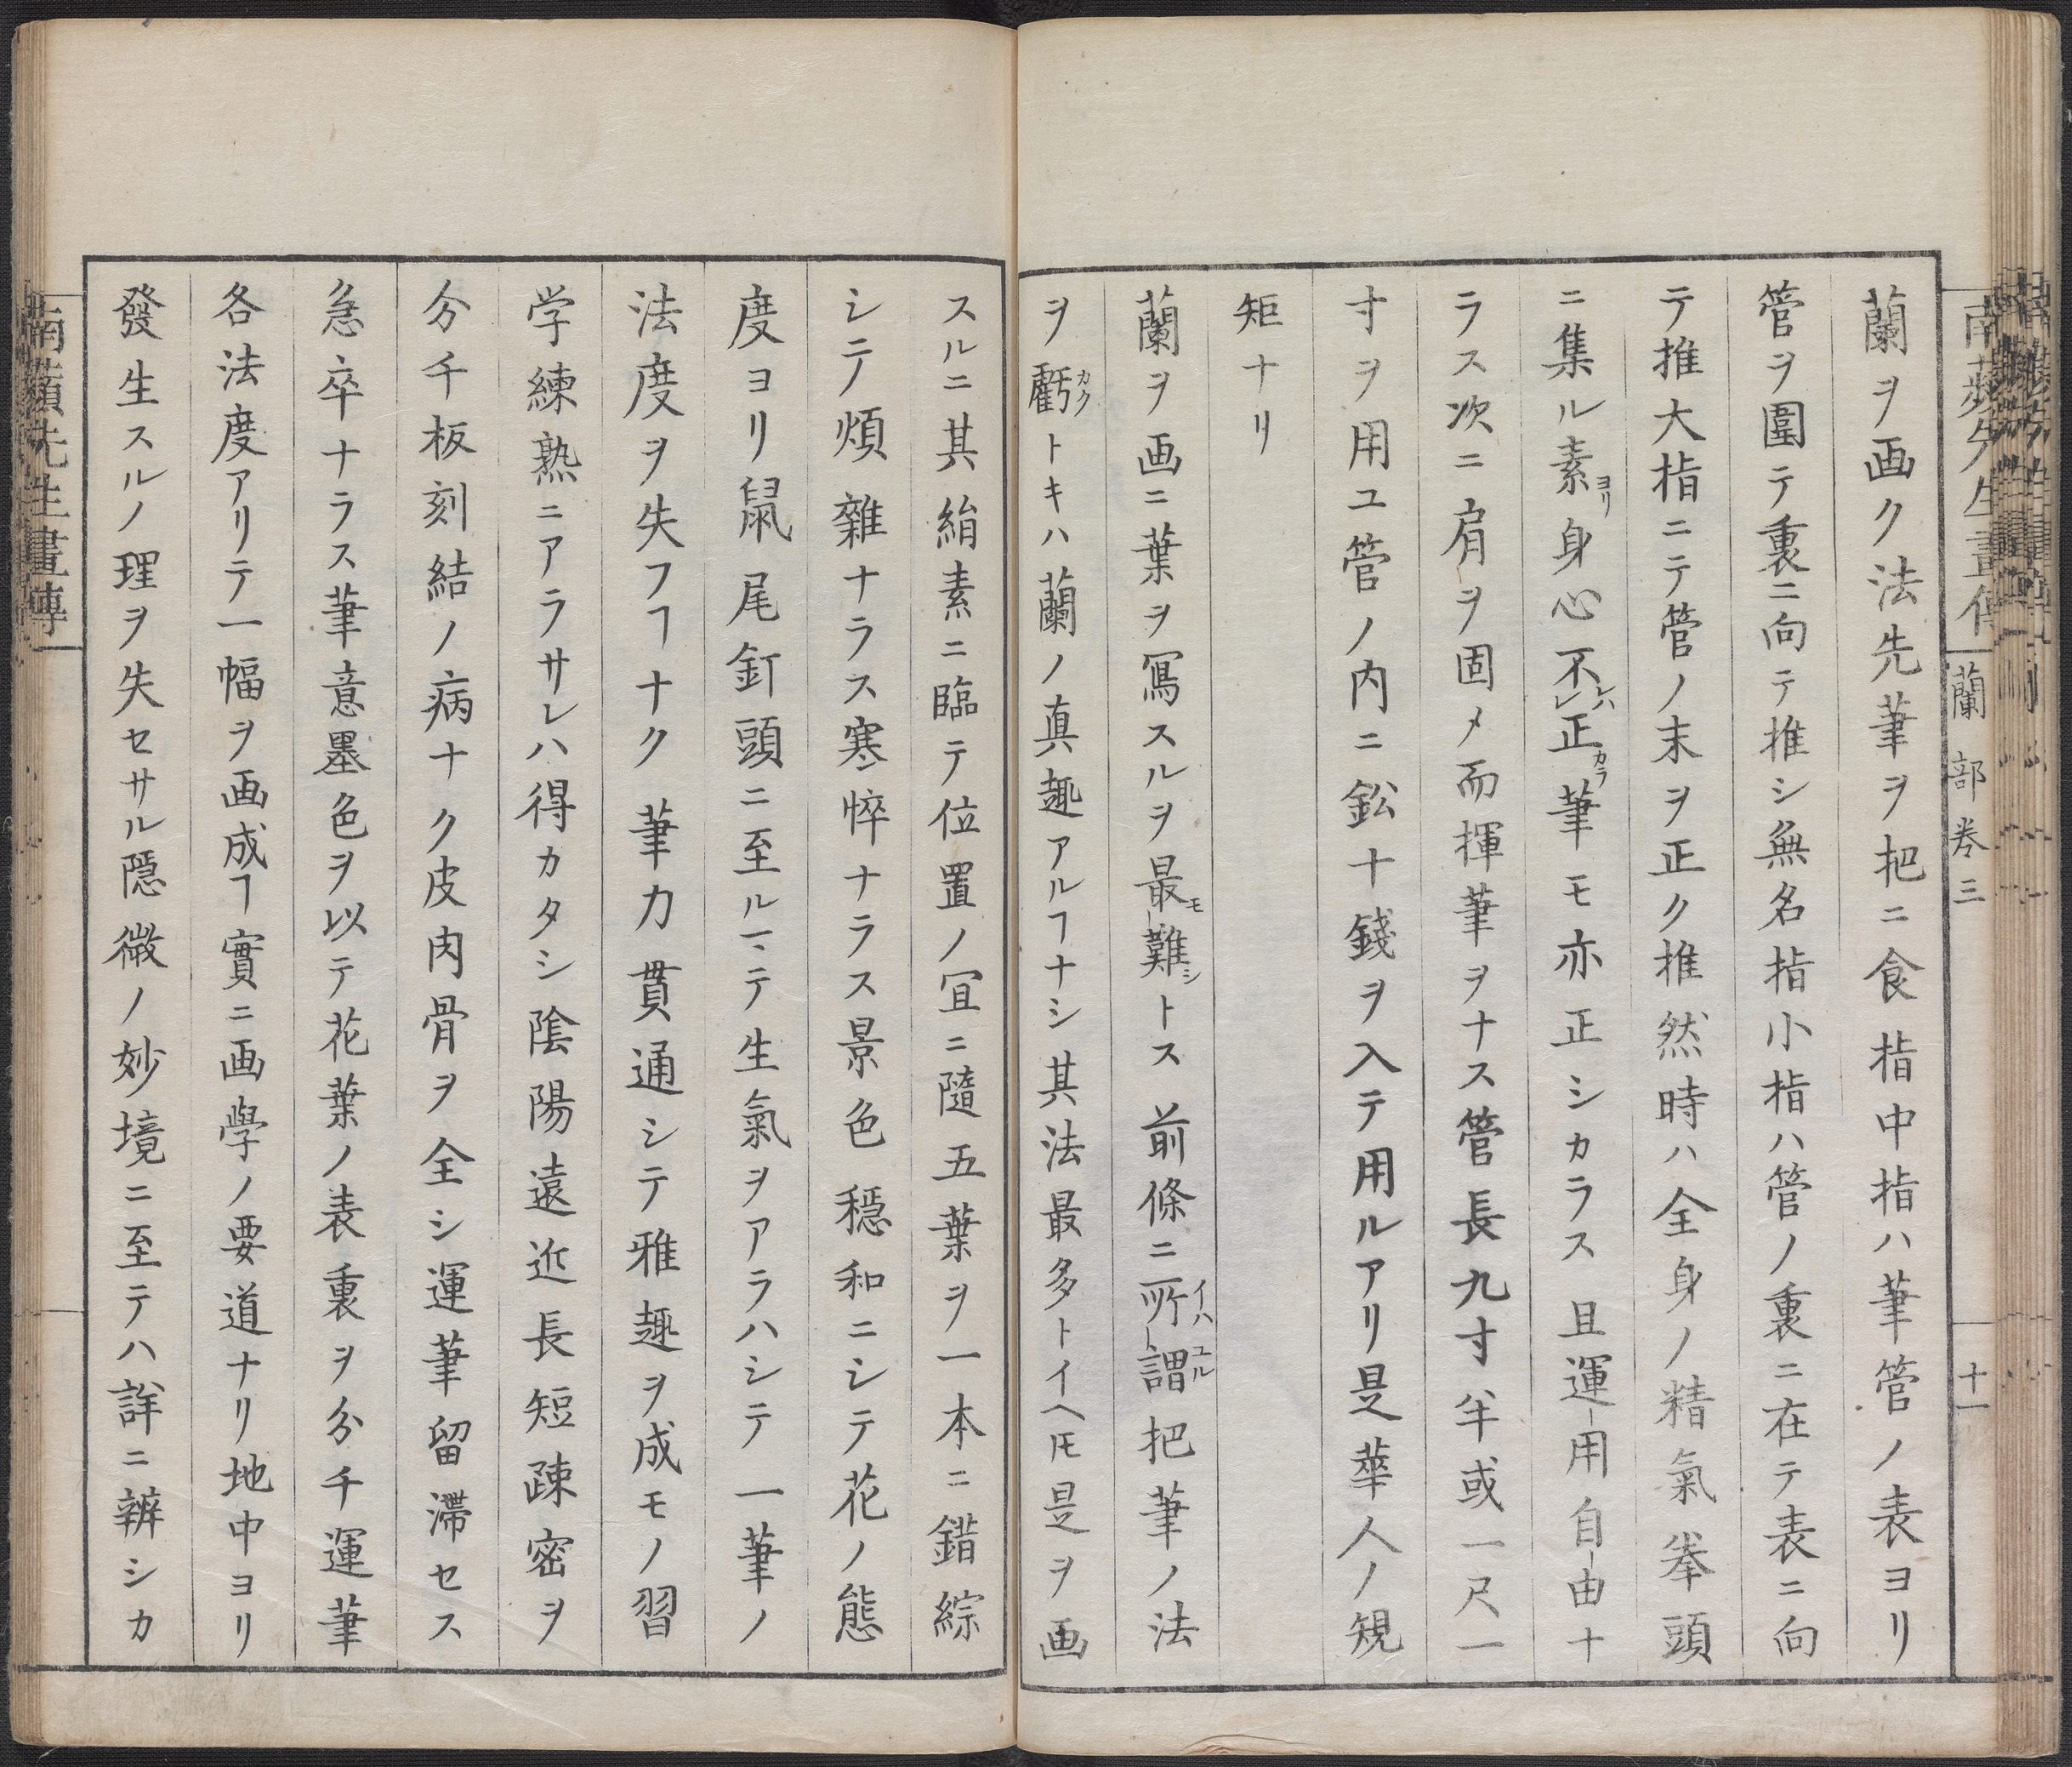 蘭部巻三
十一
蘭ヲ画ク法先筆ヲ把ニ食指中指ハ筆管ノ表ヨリ
管ヲ圍テ裏ニ向テ推シ無名指小指ハ管ノ裏ニ在テ表ニ向
テ推大指ニテ管ノ末ヲ正ク推然時ハ全身ノ精氣拳頭
ニ集ル素ヨリ身心不レハ正カラ筆モ亦正シカラス且運用自由ナ
ラス次ニ肩ヲ固メ而揮筆ヲナス管長九寸半或一尺一
寸ヲ用ユ管ノ内ニ鈆十錢ヲ入テ用ルアリ是華人ノ規
矩ナリ
蘭ヲ画ニ葉ヲ寫スルヲ最モ難シトス前條ニ所イハ謂ユル把筆ノ法
ヲ虧カクトキハ蘭ノ真趣アルヿナシ其法最多トイヘㇳモ是ヲ画
スルニ其絹素ニ臨テ位置ノ宜ニ隨五葉ヲ一本ニ錯綜
シテ煩雜ナラス寒悴ナラス景色穏和ニシテ花ノ態
度ヨリ鼠尾釘頭ニ至ルマテ生氣ヲアラハシテ一筆ノ
法度ヲ失フヿナク筆力貫通シテ雅趣ヲ成モノ習
学練熟ニアラサレハ得カタシ陰陽遠近長短疎密ヲ
分チ板刻結ノ病ナク皮肉骨ヲ全シ運筆留滯セス
急卒ナラス筆意墨色ヲ以テ花葉ノ表裏ヲ分チ運筆
各法度アリテ一幅ヲ画成ヿ實ニ画學ノ要道ナリ地中ヨリ
發生スルノ理ヲ失セサル隠微ノ妙境ニ至テハ詳ニ辨シカ
先生畫傳